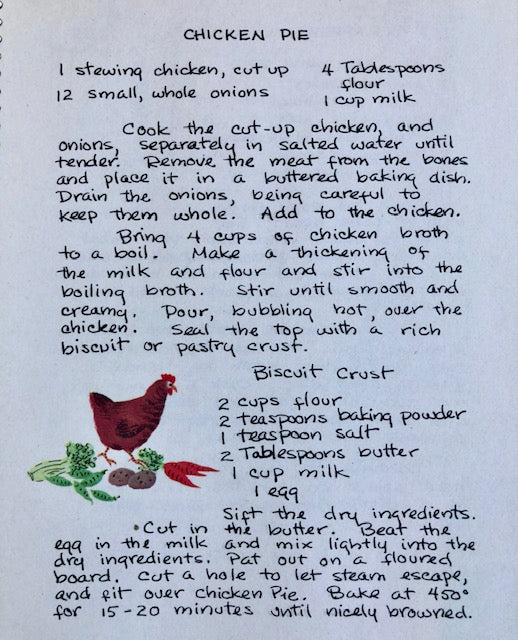 CHICKEN PIE
1 stewing chicken, cut up
12 small, whole onions
4 Tablespoons
flour
1 cup milk
Cook the cut-up chicken, and
onions, separately in salted water until
tender. Remove the meat from the bones
and place it in a buttered baking dish.
Drain the onions, being careful to
keep them whole. Add to the chicken.
Bring 4 cups of chicken broth
to a boil. Make a thickening of
the milk and flour and stir into the
boiling broth. Stir until smooth and
creamy. Pour, bubbling hot, over the
chicken. Seal the top with a rich
biscuit or pastry crust.
Biscuit Crust
2 cups flour
2 teaspoons baking powder
1 teaspoon salt
2 Tablespoons butter
1 cup milk
1 egg
Sift the dry ingredients.
Cut in the butter. Beat the
egg in the milk and mix lightly into the
dry ingredients. Pat out on a floured
board. Cut a hole to let steam escape,
and fit over Chicken Pie. Bake at 450°
for 15-20 minutes until nicely browned.